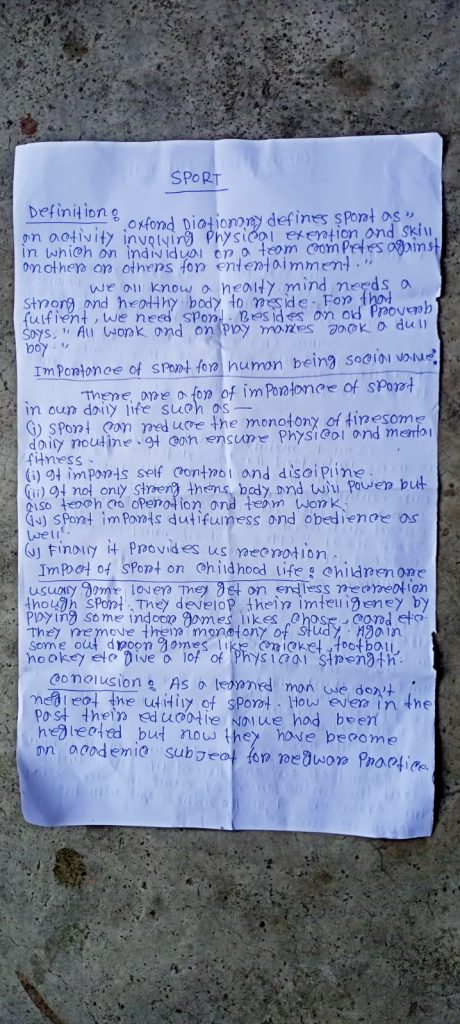 SPORT
Definition: Oxford Dictionary defines sport as "
an activity involving Physical exertion and skill
in which an individual or a team competes against
another or others for entertainment."
We all know a healty mind needs a
strong and healthy body to reside. For that
fulfient, we need sport. Besides an old Proverb
says, " All work and on play makes Jack a dull
boy."
Importance of sport for human being social value:
There are a for of importance of sport
in our daily life such as —
(i) sport can reduce the monotony of tiresome
daily routine. It can ensure Physical and mental
fitness.
(ii) It imparts self control and discipline.
(iii) It not only streng thens body and will power but
also teach co operation and team work.
(iv) sport imparts dutifulness and obedience as
well.
(v) Finally it provides us recration.
Impact of sport on childhood life: children are
usualy game lover They get an endless recreation
though sport. They develop their inteligency by
Playing some indoor games likes chose, card etc.
They remove their monotony of study. Again
some out droon games like cricket, football,
hockey etc give a lot of Physical strength.
Conclusion: As a learned man we don't
neglect the utiliy of sport. How ever in the
past their educatie value had been
neglected but now they have become
an academic subject for regular Practice.